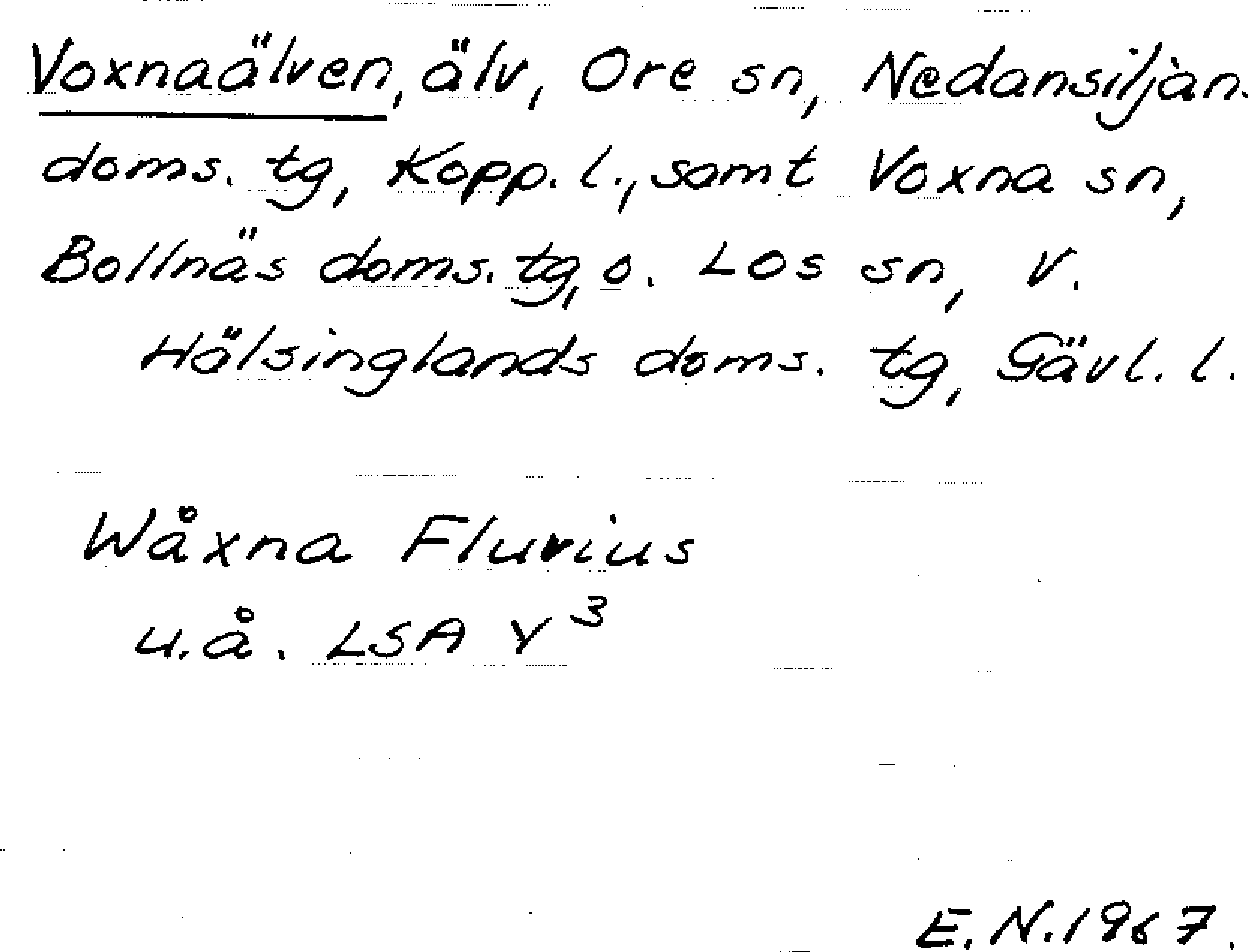 Voxnaälven, älv, Ore sn, Nedansiljans
doms. tg, Kopp. l., samt Voxna sn,
Bollnäs doms. tg, o. Los sn, V.
Hälsinglands doms. tg, Gävl. l.
Wåxna Fluvius
u.å. LSA Y³
E.N. 1967.